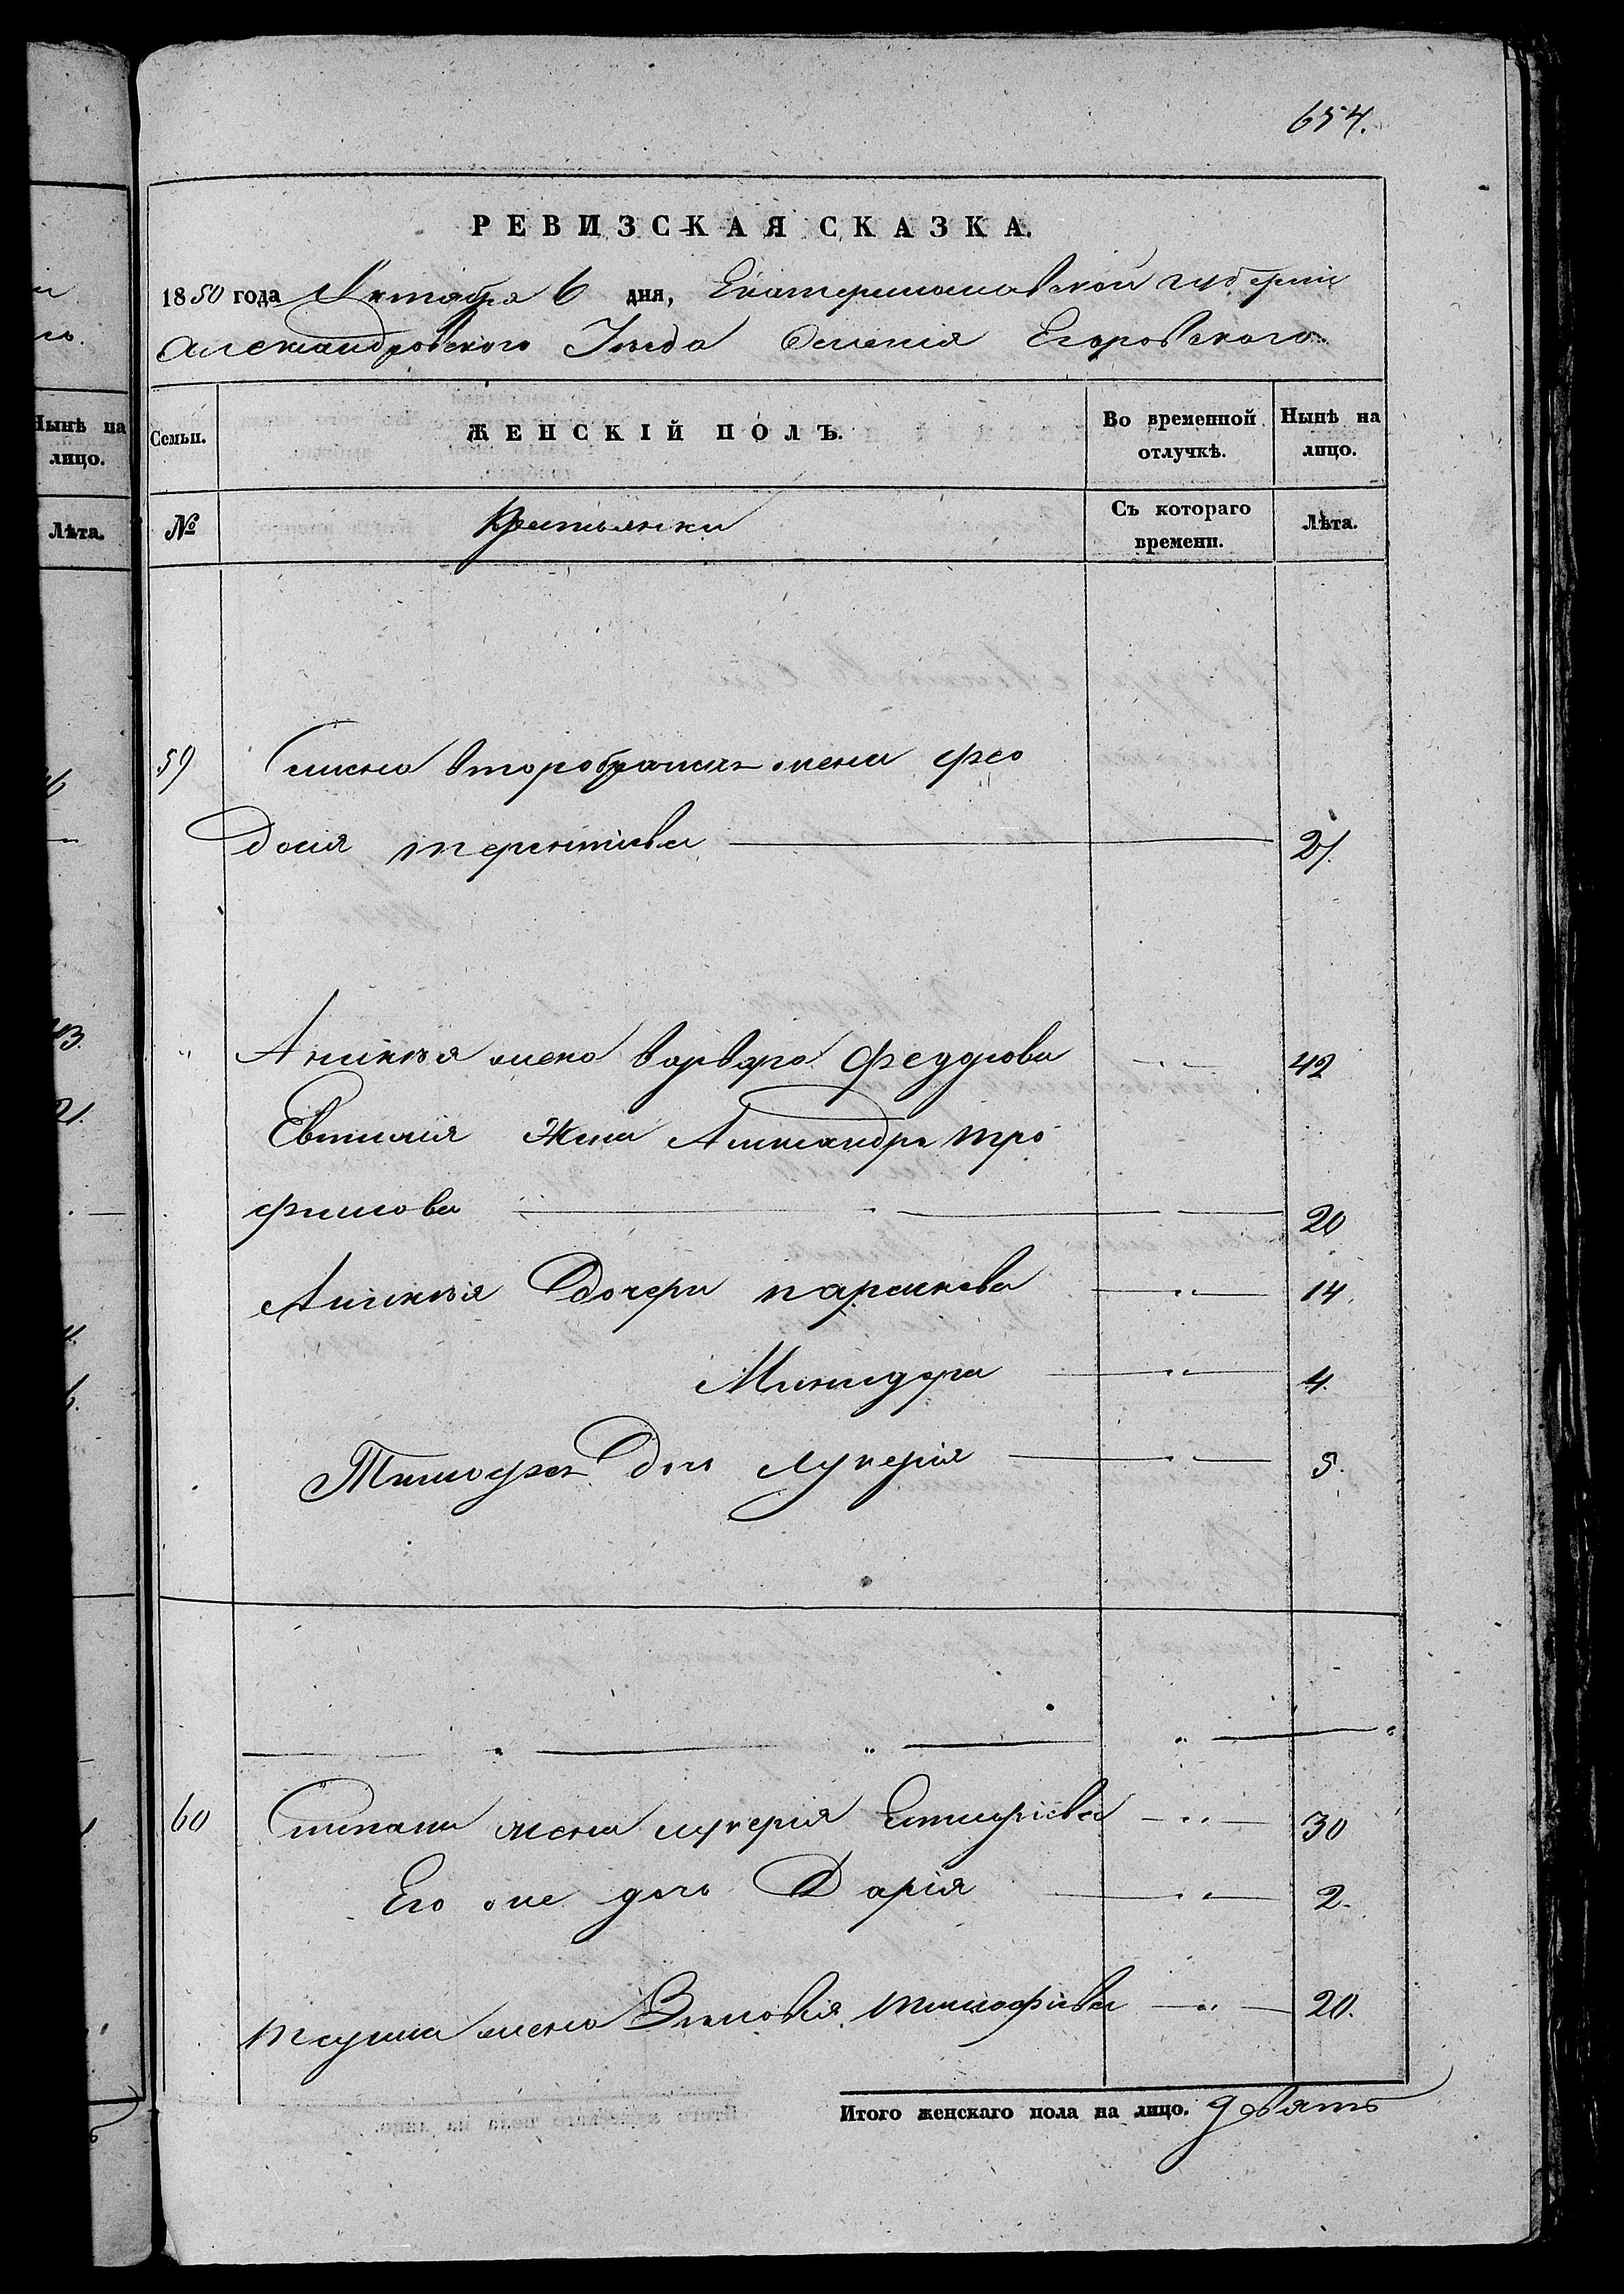 654.
РЕВИЗСКАЯ СКАЗКА.
1850 года Октября 6 дня, Екатеринославской губернiи
Александровского Уезда Селенiя Егоровского
Семьи. ЖЕНСКIЙ ПОЛЪ. Во временной отлучкѣ. Нынѣ на лицо.
№ Крестьянки Съ котораго времени. Лѣта.
59 второбрачная жена Фео
досiя терентiева 21.
" Аникѣя жена варвара Федорова 42
Евтихiя Жена Александра тро
фимова 20
Аникѣя Дочери парасковья 14.
Минидора 4.
Тимофея Дочь лукерiя 5.
60 Степана жена лукерiя 30
Его же дочь Дарiя 2.
жена Зиновiя тимофiева 20.
Итого женскаго пола на лицо. девять
Нынѣ на
лицо.
Лѣта.